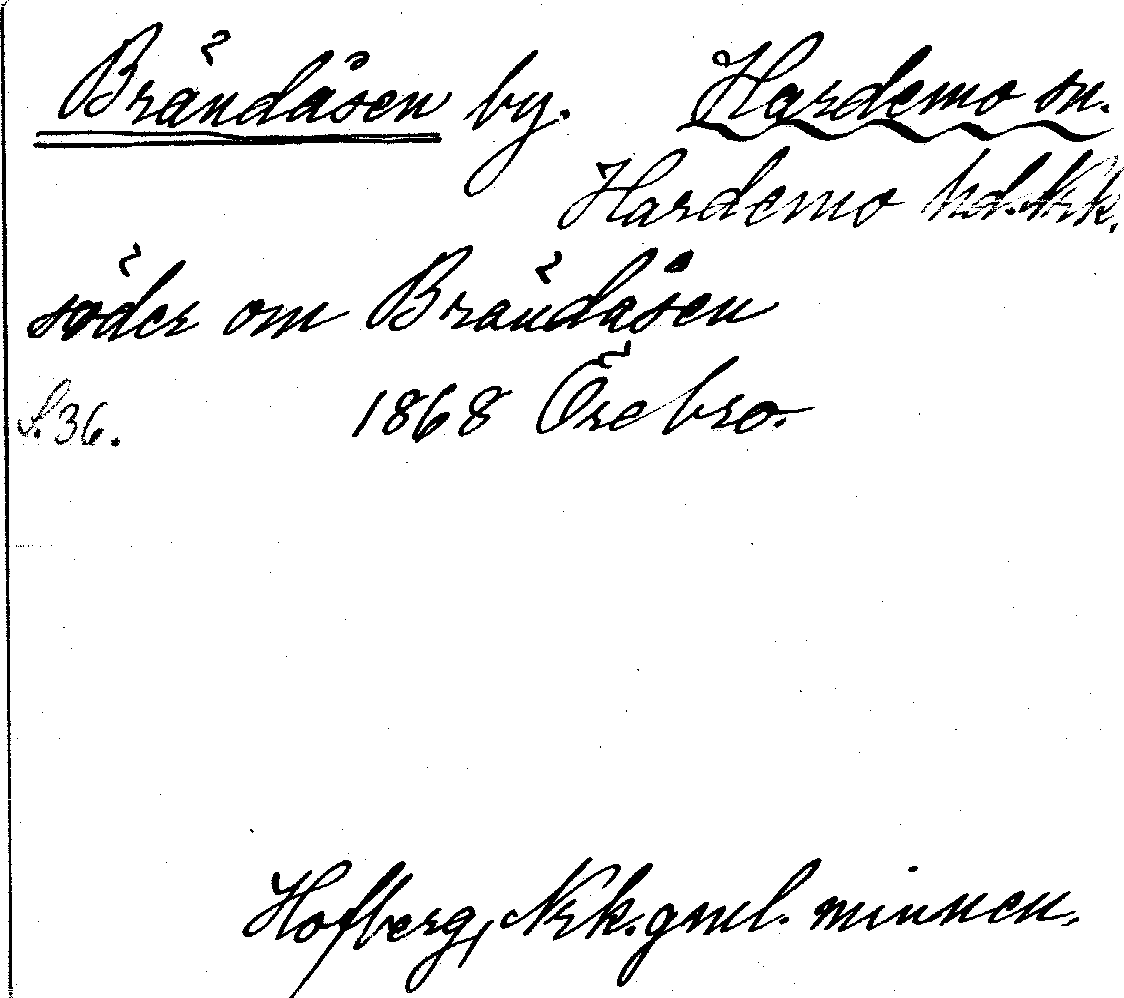 Brändåsen by. Hardemo sn.
Hardemo hd. Nrk.
söder om Brändåsen
S. 36. 1868 Örebro.
Hofberg, Nrk. gml. minnen.